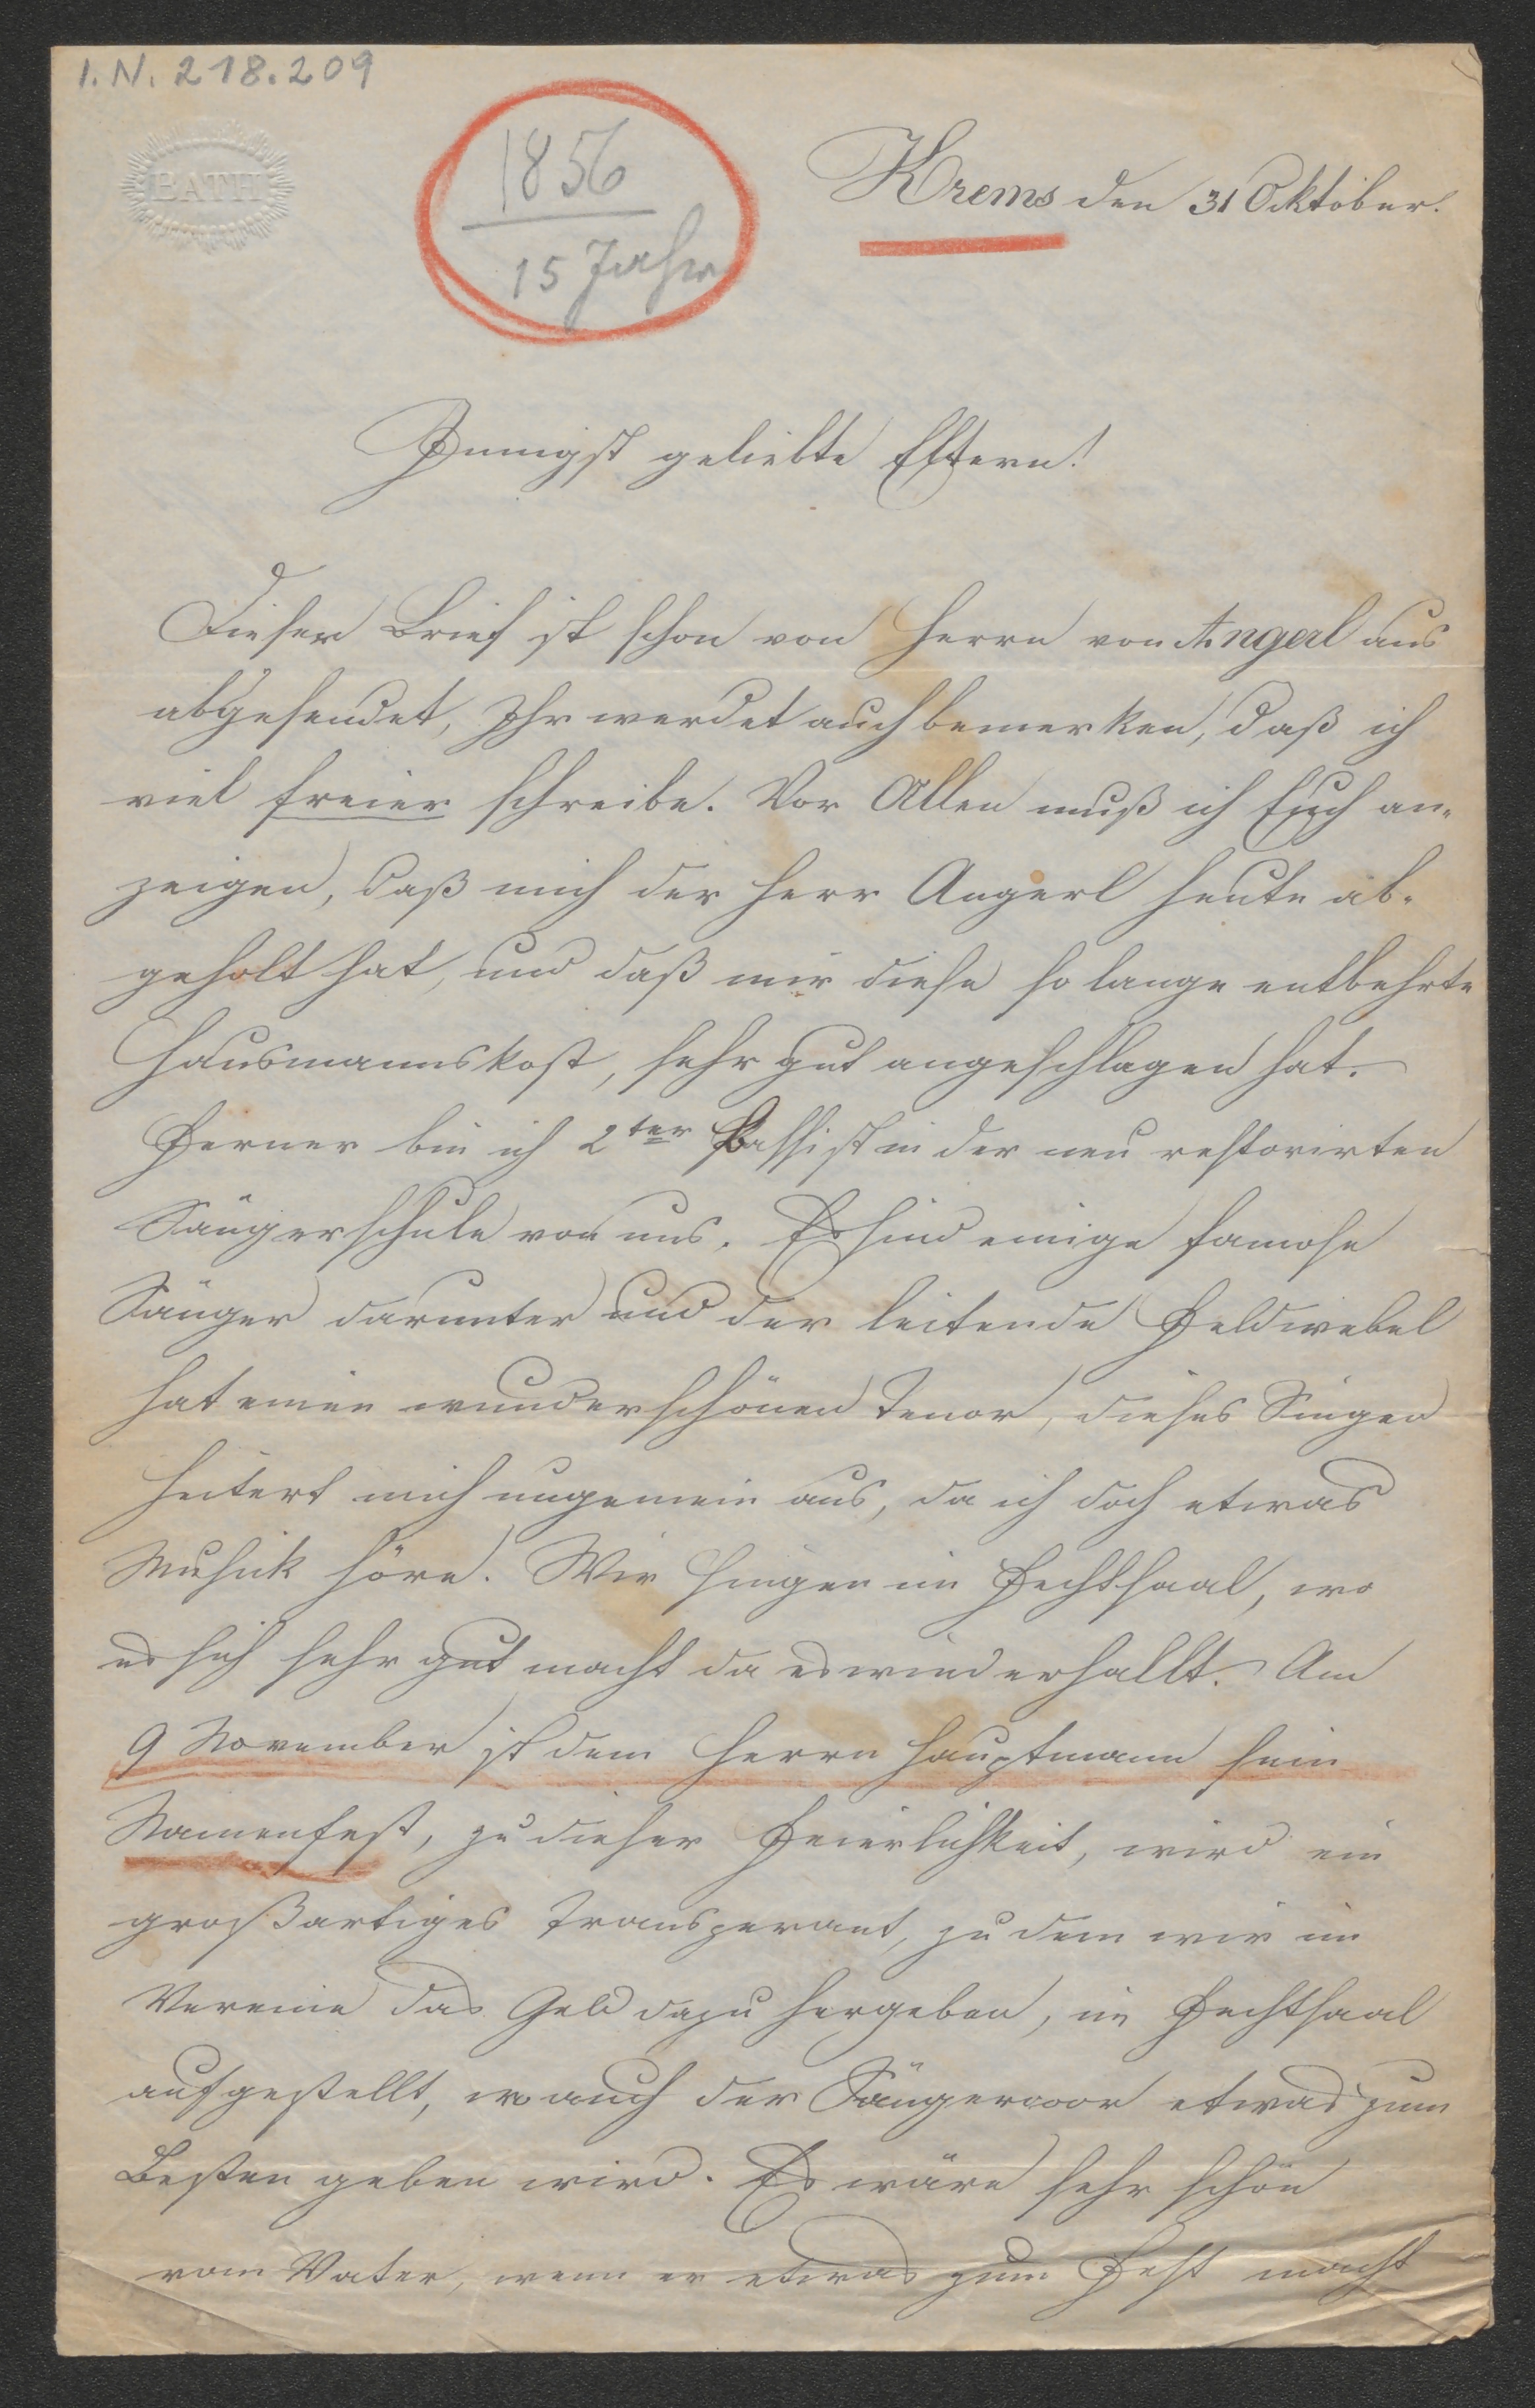 I. N. 218.209
BATH
1856
15 Jahre
Krems den 31 Oktober.
Innigst geliebte Eltern!
Dieser Brief ist schon von Herrn von Angerl aus
abgesendet, Ihr werdet auch bemerken, daß ich
viel freier schreibe. Vor Allen muß ich Euch an-
zeigen, daß mich der Herr Angerl heute ab-
geholt hat, und daß mir diese so lange entbehrte
Hausmannskost, sehr gut angeschlagen hat.
Ferner bin ich 2ter Bassist in der neu restorirten
Sängerschule von uns. Es sind einige famose
Sänger darunter und der leitende Feldwebel
hat einen wunderschönen Tenor, dieses Singen
heitert mich ungemein aus, da ich doch etwas
Musick höre. Wir singen im Fechtsaal, wo
es sich sehr gut macht da es wiederhallt. Am
9 November ist dem Herrn Hauptmann sein
Namenfest, zu dieser Feierlichkeit, wird ein
großartiges Transperant, zu dem wir im
Vereine das Geld dazu hergeben, im Fechtsaal
aufgestellt, wo auch der Sängercoor etwas zum
Besten geben wird. Es wäre sehr schön
vom Vater, wenn er etwas zum Fest macht